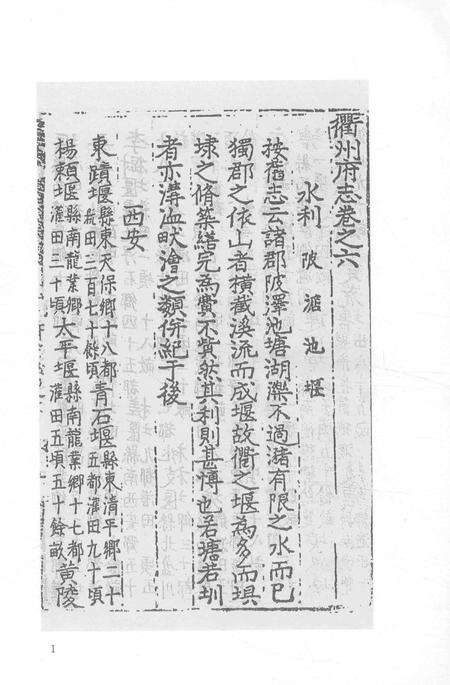 衢州府志卷之六
水利 陂 池 堰
按舊志云諸郡陂澤池塘湖濼不過瀦有限之水而已
獨郡之依山者橫截溪流而成堰故衢之堰為多而埧
埭之脩築繕完為費不貲然其利則甚博也若塘若圳
者亦溝洫畎澮之類併紀于後
西安
東蹟堰縣東天保鄉十八都田二百七十餘頃青石堰縣東清平鄉二十五都灌田九十頃
楊賴堰縣南龍業鄉灌田三十頃太平堰縣南龍業鄉十七都灌田五頃五十餘畝黃陵
1